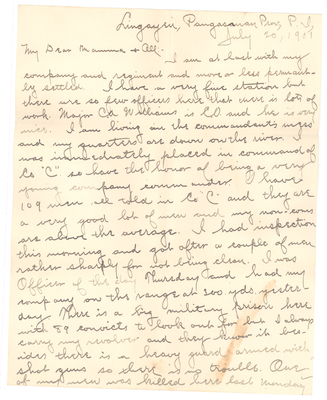 Lingayen, Pangasinan Prov, P.I.
July 20, 1901
My Dear Mamma + All:-
I am at last with my
company and regiment and more or less permanent-
ly settled. I have a very fine station but
there are so few officers here that there is lots of
work. Major CA Williams is C.O and he is very
nice. I am living in the commandants mess
and my quarters are down on the river. I
was immediately placed in command of
Co "C" so have the honor of being a very
young company commander. I have
109 men all told in Co "C" and they are
a very good lot of men and my non-coms
are above the average. I had inspection
this morning and got after a couple of men
rather sharply for not being clean. I was
Officer of the day Thursday and had my
company on the range at 200 yds. yester-
day. There is a big military prison here
with 59 convicts to look out for but I always
carry my revolver and they know it bes-
ides there is a heavy guard armed with
shot guns so there is no trouble. One
of my men was killed here last Monday